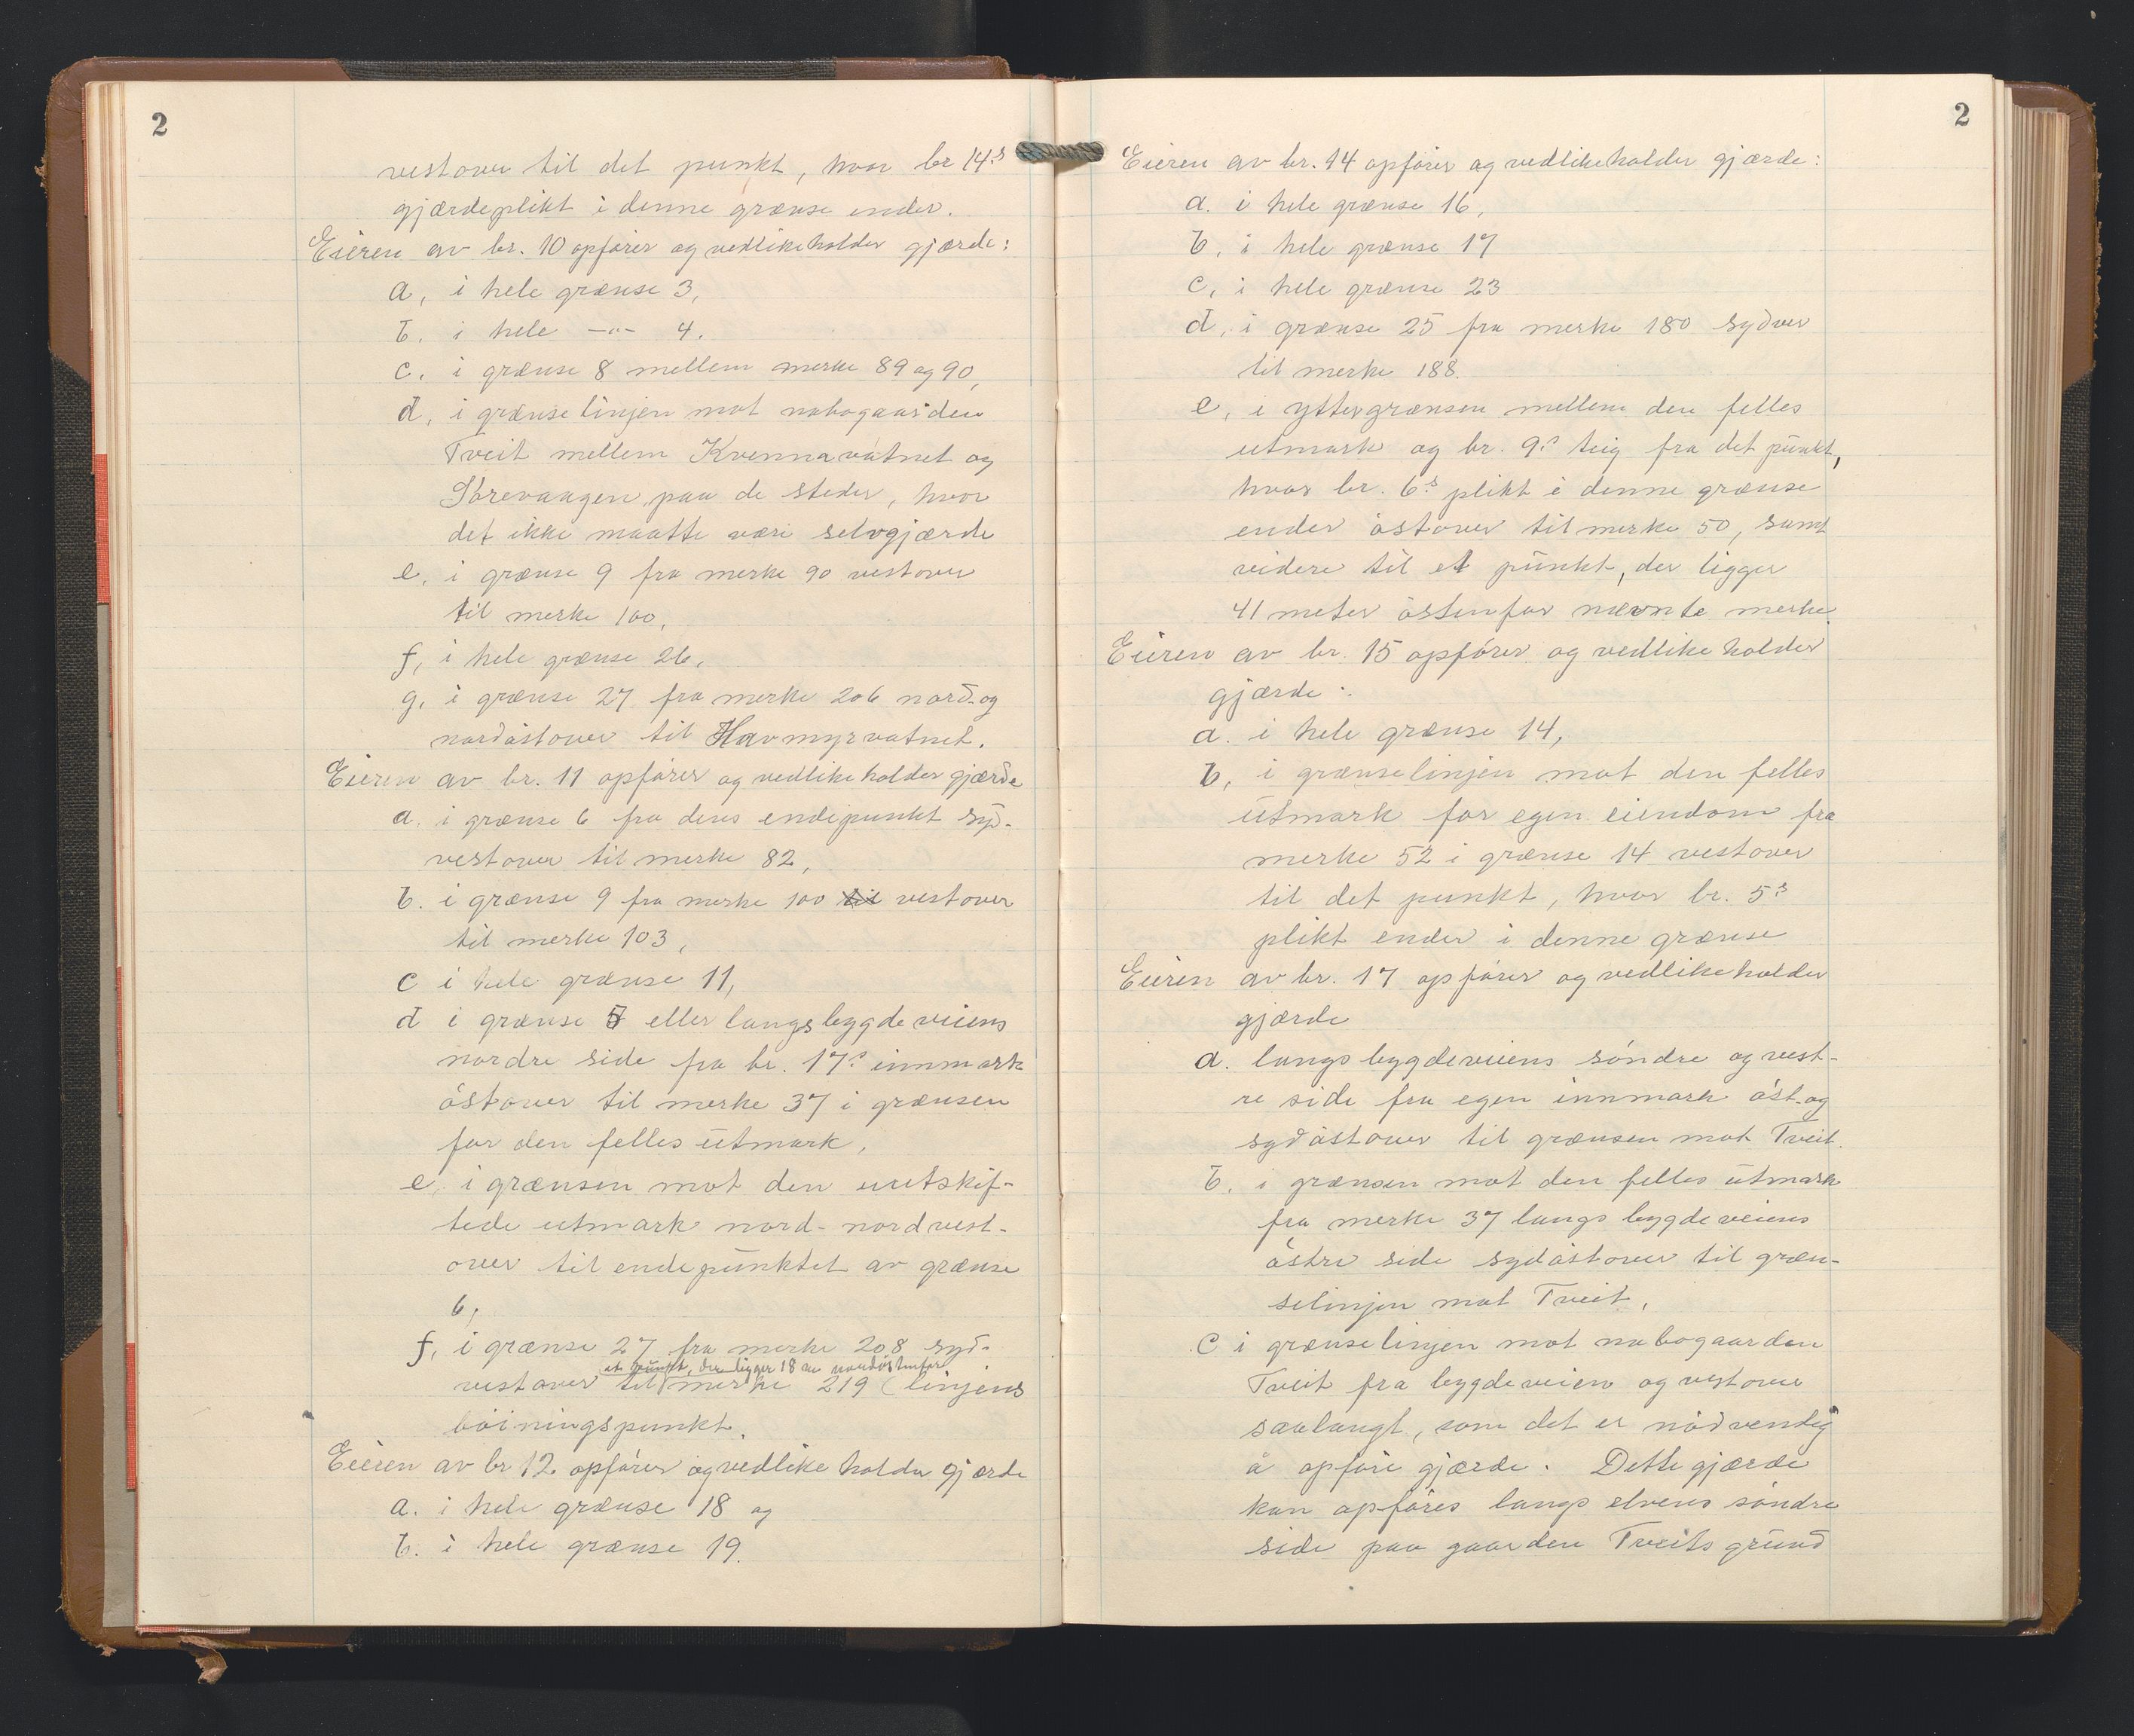 2
vestover til det punkt, hvor br 14.s
gjærdeplikt i denne grænse ender.
Eieren av br. 10 opfører og vedlikeholder gjærde:
a, i hele grænse 3,
b. i hele –"– 4.
c. i grænse 8 mellem merke 89 og 90,
d, i grænselinjen mot nabogaarden
Tveit mellem Kvennavatnet og
paa de steder, hvor
det ikke maatte være selvgjærde
e, i grænse 9 fra merke 90 vestover
til merke 100,
f, i hele grænse 26,
g, i grænse 27 fra merke 206 nord- og
nordøstover til Havmyrvatnet.
Eieren av br. 11 opfører og vedlikeholder gjærde
a. i grænse 6 fra dens endepunkt syd-
vestover til merke 82,
b. i grænse 9 fra merke 100 til vestover
til merke 103,
c i hele grænse 11,
d i grænse 5 eller langs bygdeveiens
nordre side fra br. 17.s innmark
østover til merke 37 i grænsen
for den felles utmark,
e, i grænsen mot den uutskif-
tede utmark nord- nordvest-
over til endepunktet av grænse
6,
f, i grænse 27 fra merke 208 syd-
et punkt, der ligger 18 m nordøstenfor
vestover til merke 219 (linjens
bøiningspunkt.
Eieren av br 12. opfører og vedlikeholder gjærde
a. i hele grænse 18 og
b. i hele grænse 19.
2
Eieren av br. 14 opfører og vedlikeholder gjærde:
a. i hele grænse 16,
b, i hele grænse 17
c, i hele grænse 23
d, i grænse 25 fra merke 180 sydver
til merke 188.
e, i yttergrænsen mellem den felles
utmark og br. 9.s teig fra det punkt,
hvor br. 6.s plikt i denne grænse
ender østover til merke 50, samt
videre til et punkt, der ligger
41 meter østenfor nævnte merke.
Eieren av br. 15 opfører og vedlikeholder
gjærde:
a. i hele grænse 14,
b, i grænselinjen mot den felles
utmark for egen eiendom fra
merke 52 i grænse 14 vestover
til det punkt, hvor br. 5s
plikt ender i denne grænse
Eieren av br. 17 opfører og vedlikeholder
gjærde
a. langs bygdeveiens søndre og vest-
re side fra egen innmark øst- og
sydøstover til grænsen mot Tveit.
b. i grænsen mot den felles utmark
fra merke 37 langs bygdeveiens
østre side sydøstover til græn-
selinjen mot Tveit,
c i grænselinjen mot nabogaarden
Tveit fra bygdeveien og vestover
saalangt, som det er nødvendig
å opføre gjærde. Dette gjærde
kan opføres langs elvens søndre
side paa gaarden Tveits grund